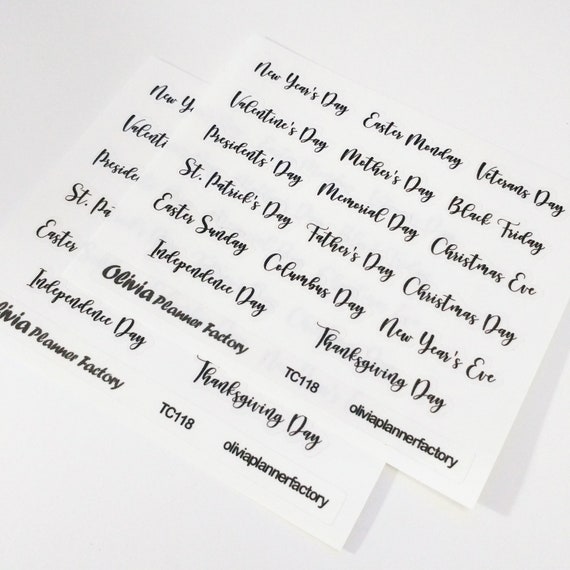 New Year's Day Easter Monday Veterans Day
Valentine's Day Mother's Day Black Friday
Presidents' Day Memorial Day Christmas Eve
St. Patrick's Day Father's Day Christmas Day
Easter Sunday Columbus Day New Year's Eve
Independence Day Thanksgiving Day
Olivia Planner Factory TC118 oliviaplannerfactory
New Y
Valenti
Preside
St. Pa
Easter
Independence Day Thanksgiving Day
Olivia Planner Factory TC118 oliviaplannerfactory